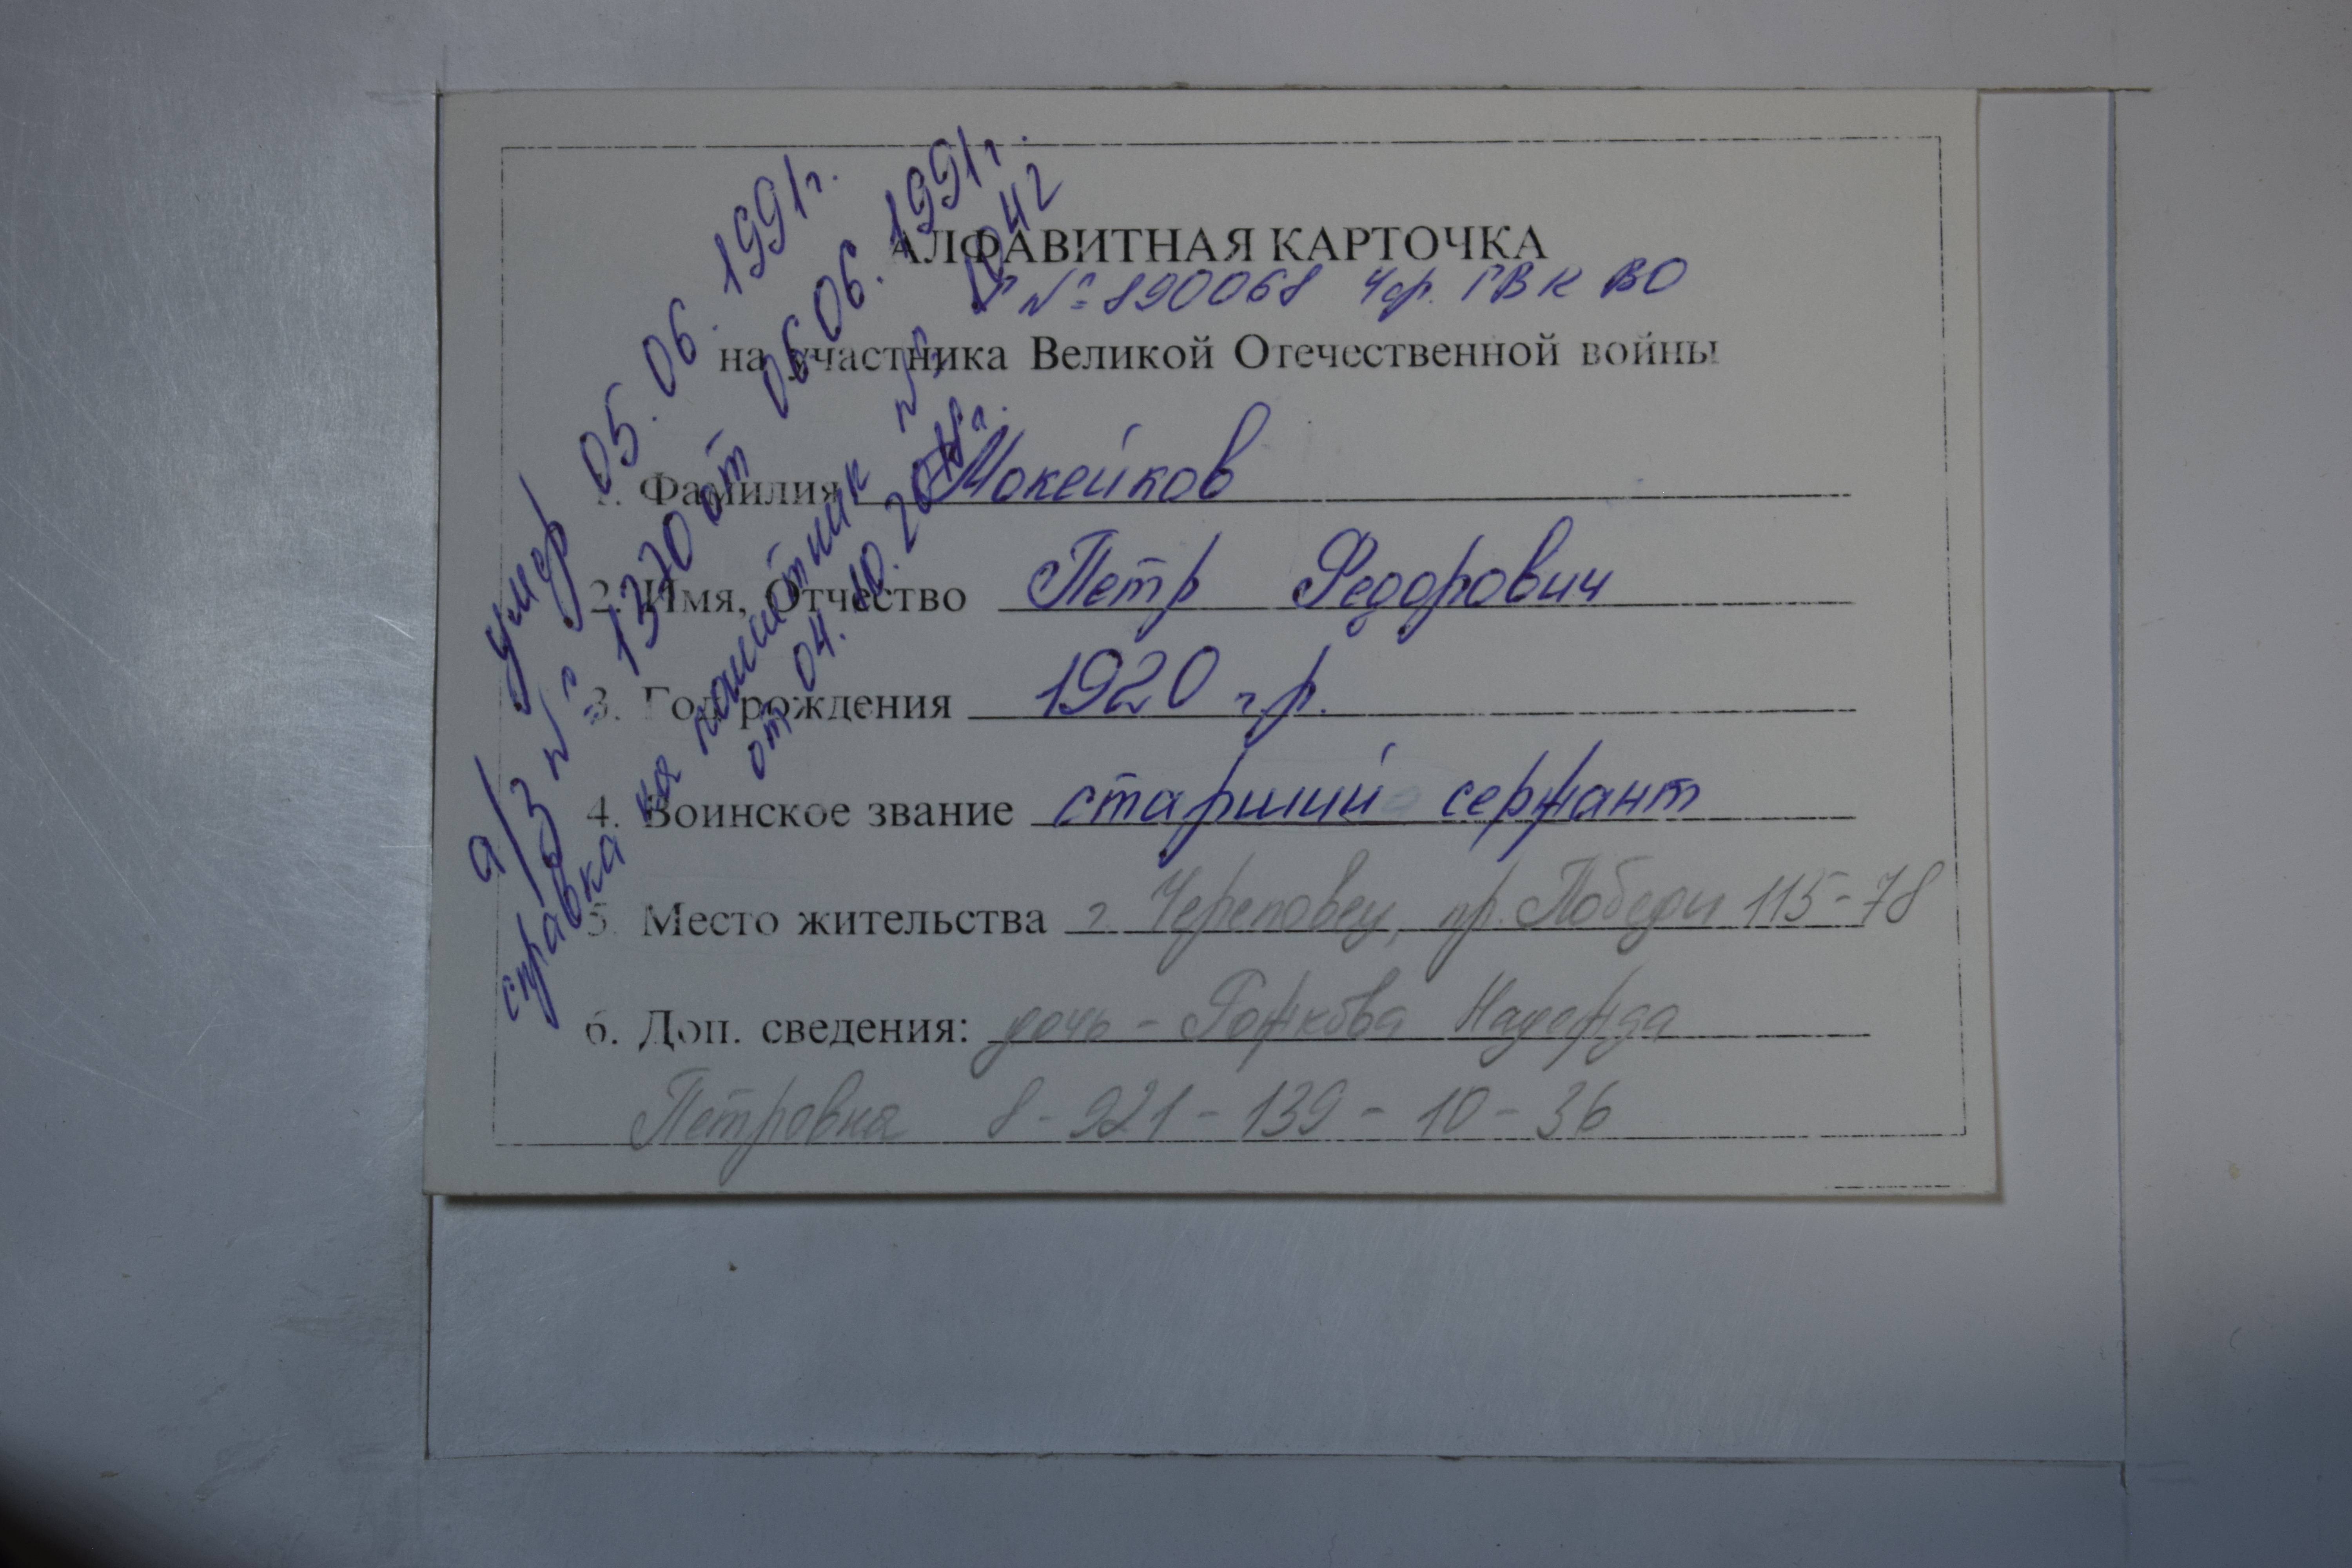 АЛФАВИТНАЯ КАРТОЧКА
Г № 890068 Чер. ГВК ВО
на участника Великой Отечественной войны
1. Фамилия Мокейков
2. Имя, Отчество Петр Федорович
3. Год рождения 1920 г.р.
4. Воинское звание старший сержант
5. Место жительства г. Череповец, пр. Победы 115-78
6. Доп. сведения: дочь - Рожкова Надежда
Петровна 8-921-139-10-36
умер 05.06.1991г.
а/з № 1330 от 06.06.1991г.
справка на памятник № 1042
от 04.10.2011г.